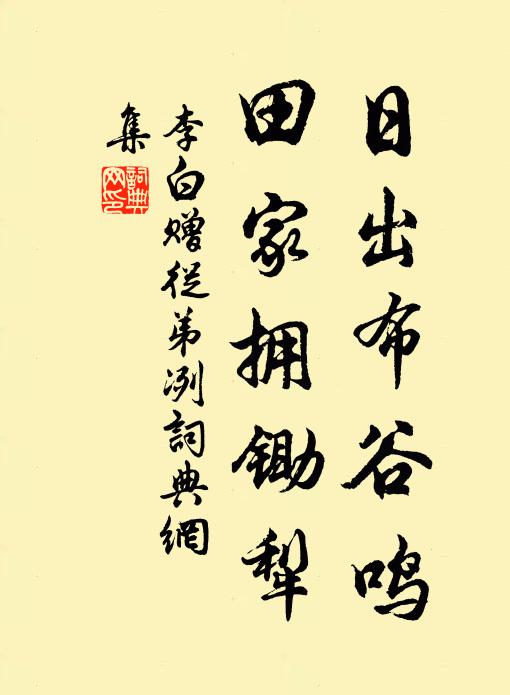 日出布谷鸣
田家拥锄犁
李白赠從弟冽詞典網
集
詞典网印